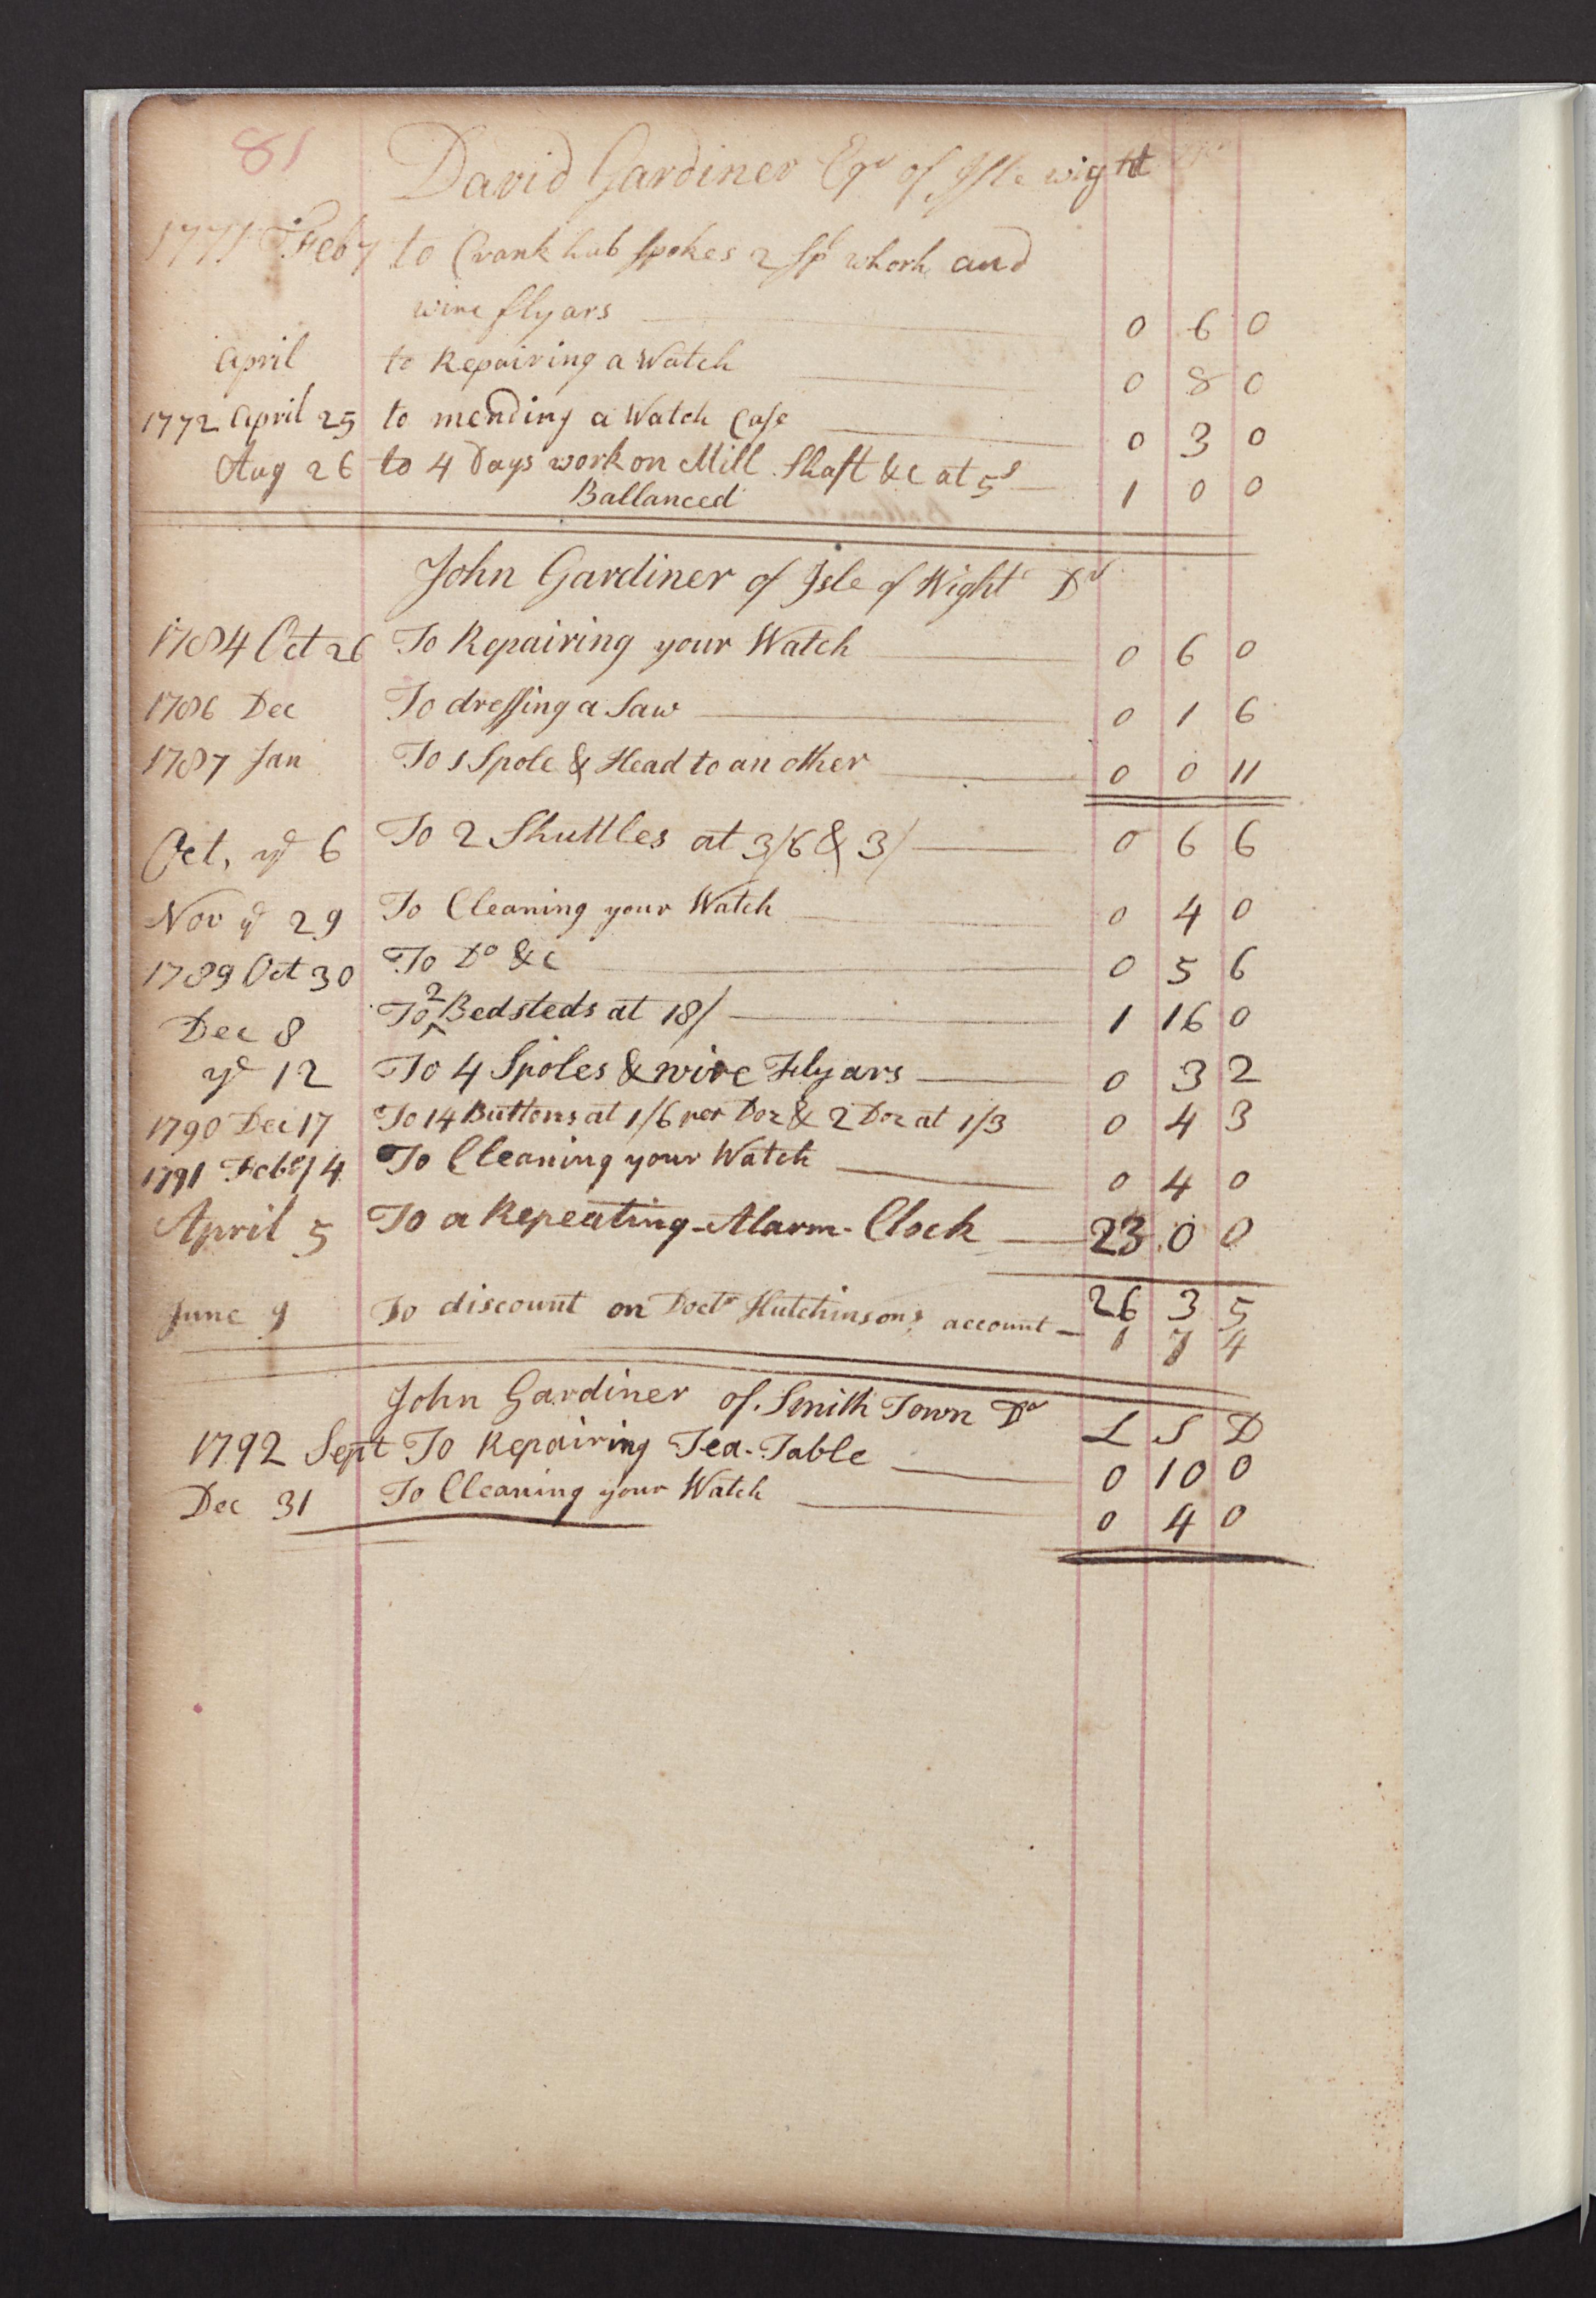 81
David Gardiner Eqr of Isle wight
1771 Feb 7 to Crank hub spokes 2 sp whorh and
wire flyars 0 6 0
April to Repairing a Watch 0 8 0
1772 April 25 to mending a Watch Case 0 3 0
Aug 26 to 4 Days work on Mill Shaft &c at 5s 1 0 0
Ballanced
John Gardiner of Isle of Wight Dr
1784 Oct 26 To Repairing your Watch 0 6 0
1786 Dec To dressing a Saw 0 1 6
1787 Jan To 1 Spole & Head to an other 0 0 11
Oct, ye 6 To 2 Shuttles at 3/6 & 3/ 0 6 6
Nov ye 29 To Cleaning your Watch 0 4 0
1789 Oct 30 To Do &c 0 5 6
Dec 8 To 2 Bedsteds at 18/ 1 16 0
ye 12 To 4 Spoles & wire Flyars 0 3 2
1790 Dec 17 To 14 Buttons at 1/6 per Doz & 2 Doz at 1/3 0 4 3
1791 Feby 4 To Cleaning your Watch 0 4 0
April 5 To a Repeating-Alarm-Clock 23 0 0
26 3 5
June 9 To discount on Doctr Hutchinsons account 1 7 4
John Gardiner of Smith Town Dr L S D
1792 Sept To Repairing Tea-Table 0 10 0
Dec 31 To Cleaning your Watch 0 4 0